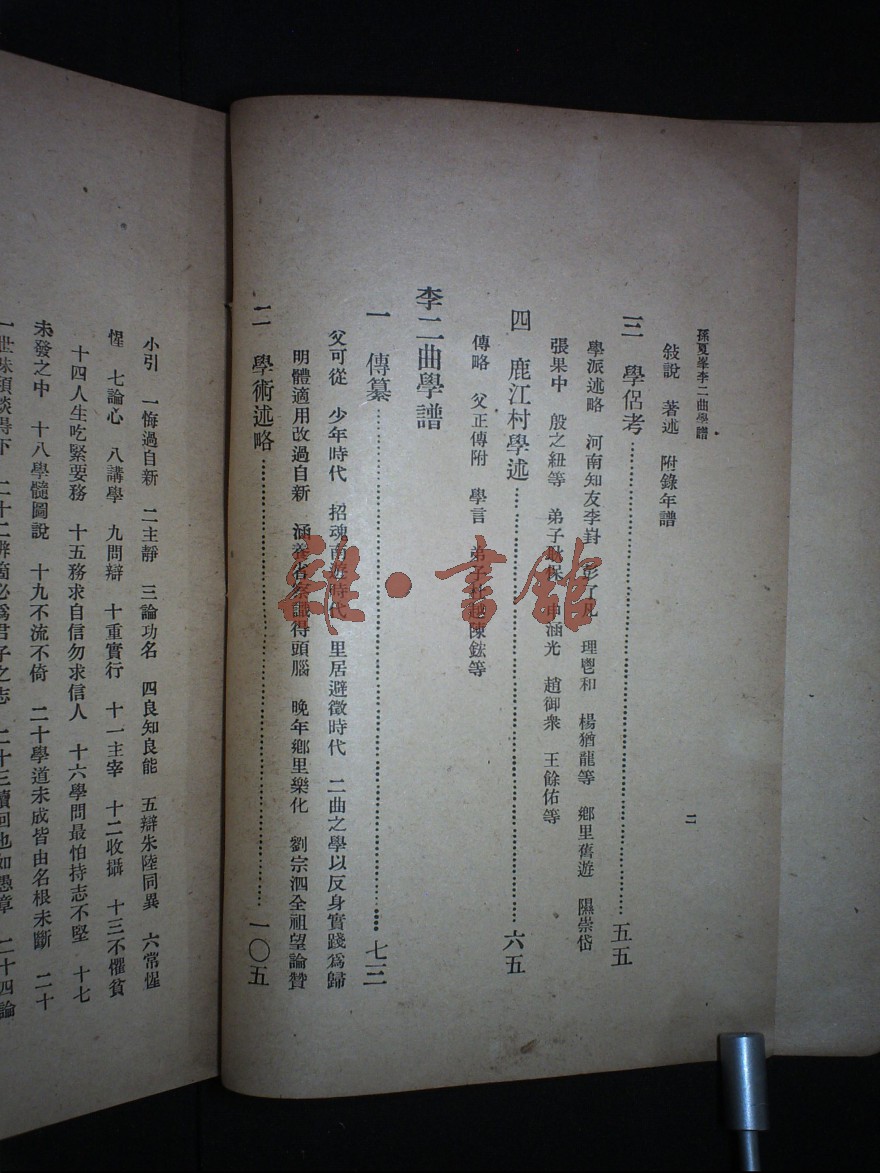 孫夏峯李二曲學譜
敍說　著述　附錄年譜
三　學侶考…………五五
學派述略　河南知友李崶　彭了凡　理鬯和　楊猶龍等　鄉里舊遊　隰崇岱
張果中　殷之紐等　弟子耿保　申涵光　趙御衆　王餘佑等
四　鹿江村學述…………六五
傳略　父正傳附　學言　弟子杜越陳鋐等
李二曲學譜
一　傳纂…………七三
父可從　少年時代　招魂南遊時代　里居避徵時代　二曲之學以反身實踐爲歸
明體適用改過自新　涵養省察識得頭腦　晚年鄉里樂化　劉宗泗全祖望論贊
二　學術述略…………一〇五
二
小引　一悔過自新　二主靜　三論功名　四良知良能　五辯朱陸同異　六常惺
惺　七論心　八講學　九問辯　十重實行　十一主宰　十二收攝　十三不懼貧
十四人生吃緊要務　十五務求自信勿求信人　十六學問最怕持志不堅　十七
未發之中　十八學髓圖說　十九不流不倚　二十學道未成皆由名根未斷　二十
一世味須淡得下　二十二辨箇必爲君子之志　二十三續回也如愚章　二十四論
雜·書館